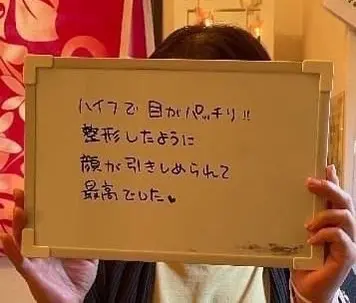 ハイフで目がパッチリ!!
整形したように
顔が引きしめられて
最高でした♥